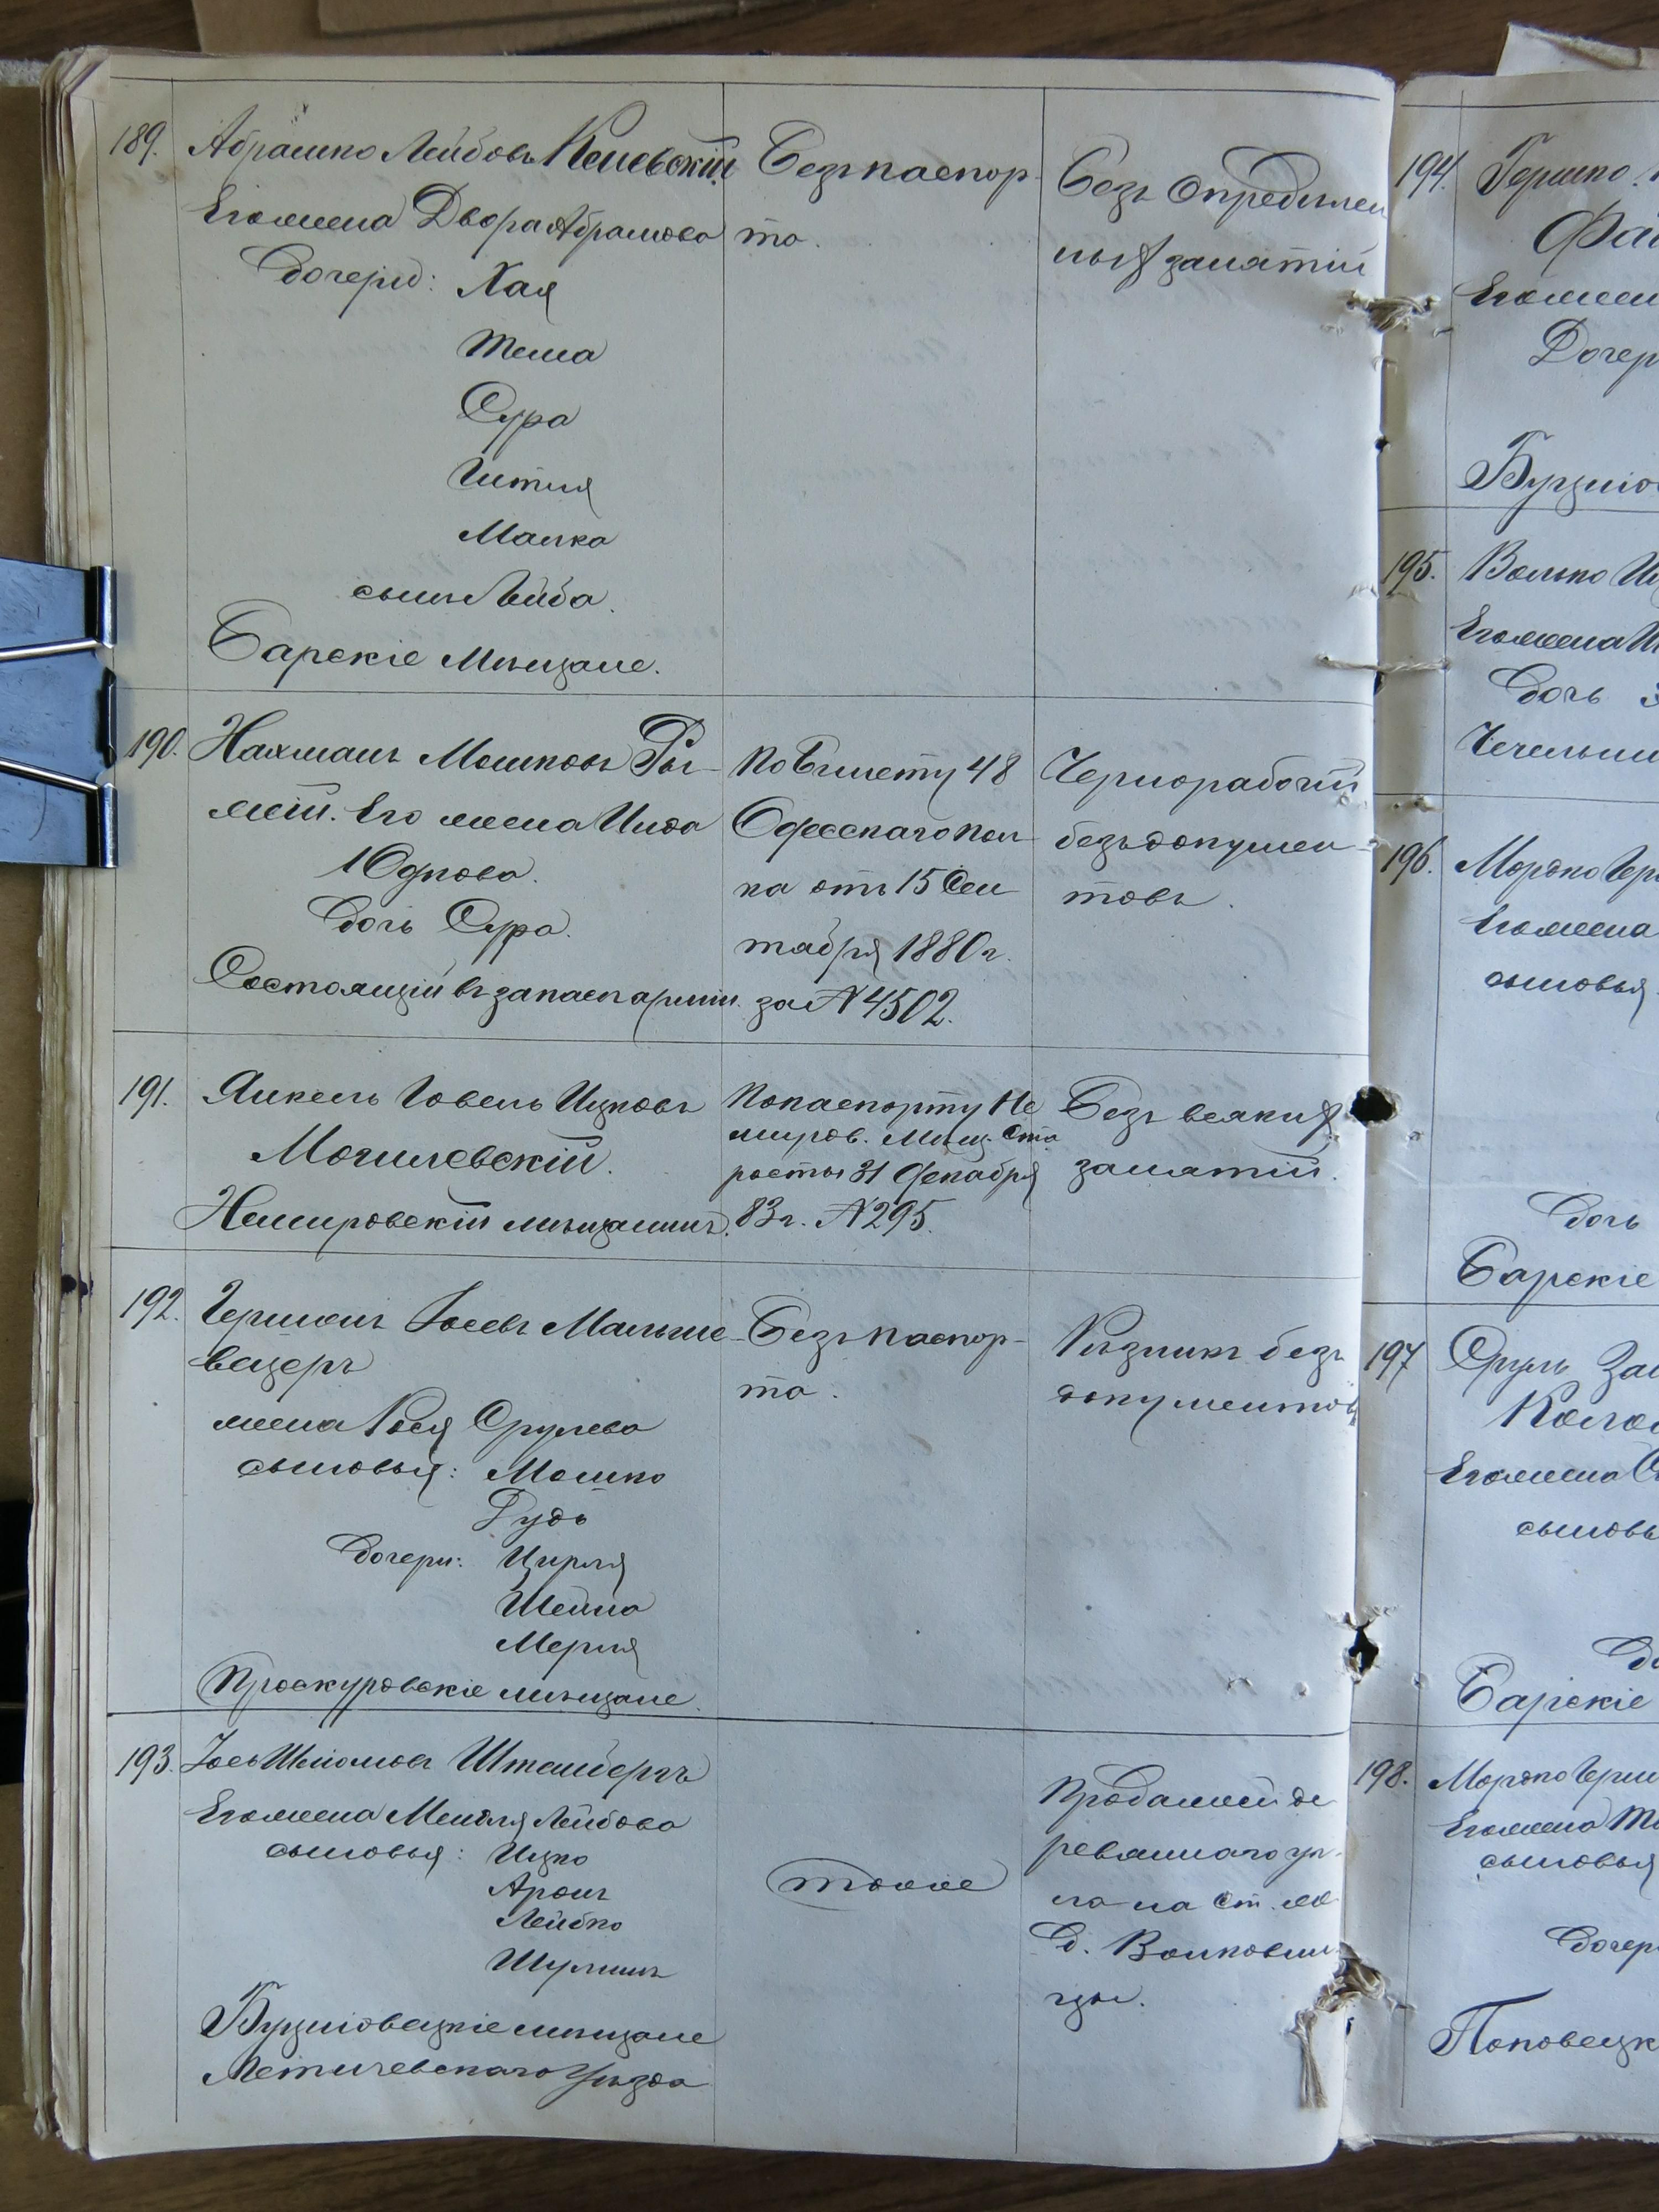 189. Абрашко Лейбовъ Кешевскій
Его жена Двора Абрамова
дочери: Хая
Теша
Сура
Гитля
Малка
сынъ Лейба.
Барскіе Мѣщане.
Безъ паспор-
та.
Безъ опредѣлен
ныхъ занятій
190. Нахманъ Мошковъ
Его жена
Юдкова.
дочь Сура.
Состоящій въ запасѣ арміи.
По билету 48
Одесскаго пол
ка отъ 15 Сен
тября 1880 г.
за № 4502.
Чернорабочій
безъ докумен-
товъ.
191. Янкель Говель Ицковъ
Могилевскій.
Немировскій мѣщанинъ.
По паспорту Не
миров. Мѣщ. Ста
росты 31 Декабря
83 г. № 295.
Безъ всякихъ
занятій.
192. Гершонъ Іосевъ Мальме-
вецеръ
жена Рося Срулева
сыновья: Мошко
Рудь
дочери: Цирля
Шейна
Мерля
Проскуровскіе мѣщане.
Безъ паспор-
та.
Рѣзникъ безъ
документовъ
193. Іось Шліомовъ Штейнбергъ
Его жена Лейбова
сыновья: Ицко
Аронъ
Лейбко
Шулимъ
Буцніовецкіе мѣщане
Летичевскаго Уѣзда
тоже
Продажей де
ревяннаго уг-
ля на ст. ж
д. Волковин
цы.
194. Гершко.
Его жен
Дочер
Буцніов
195. Волько
Его жена
дочь
Чечельни
196. Мордко Гер
Его жена
сыновья
дочь
Барскіе
197 Сруль
Его жена
сыновь
Барскіе
198. Мордко Герш
Его жена
сыновья
дочер
Поповецк